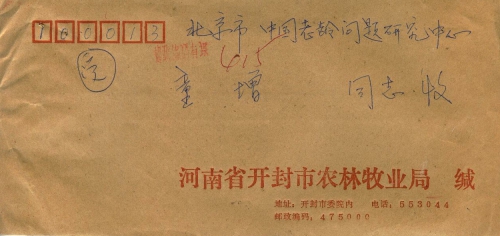 760013
北京市 中国老龄问题研究中心
415
受
童 增 同志 收
河南省开封市农林牧业局 缄
地址:开封市委院内 电话:553044
邮政编码:475000